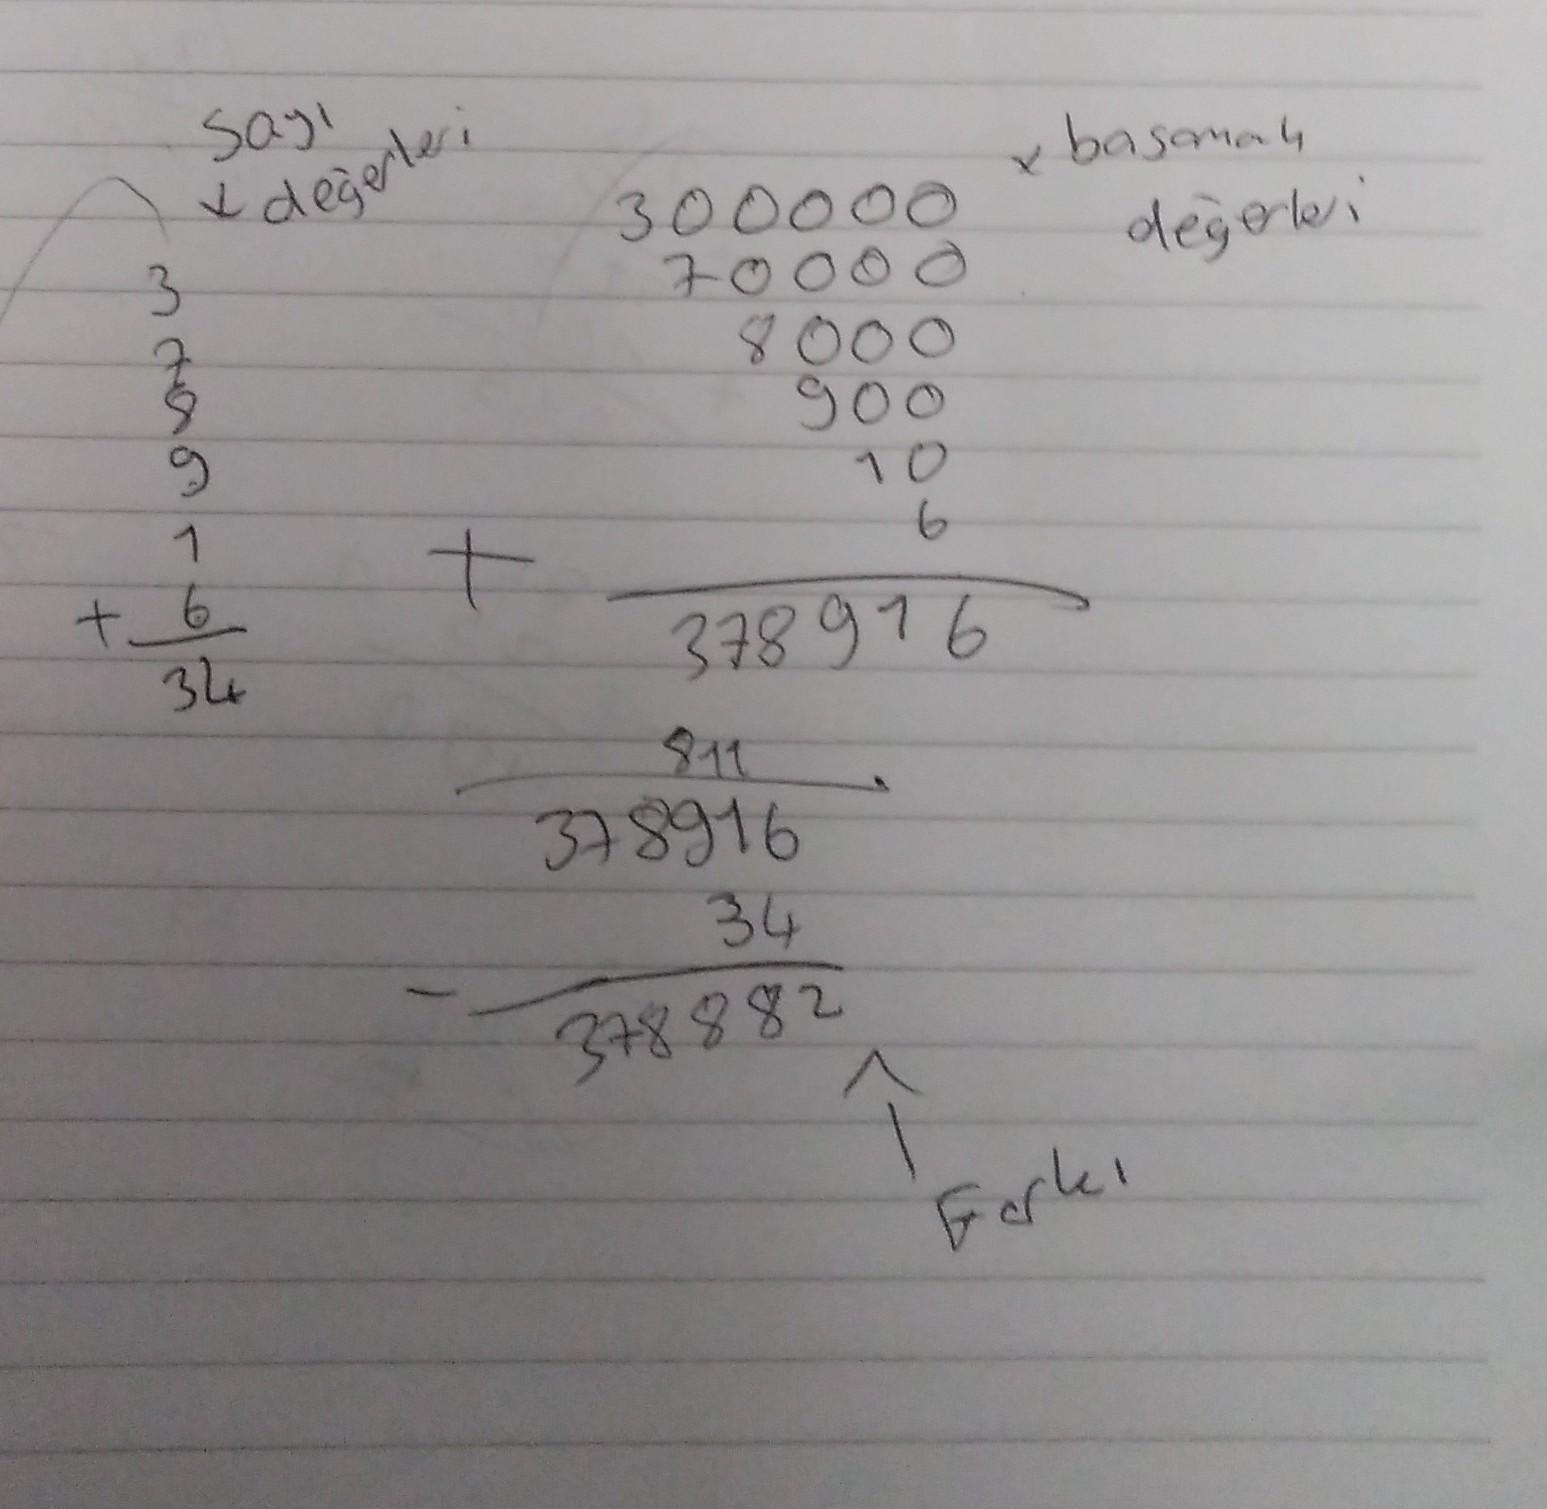 sayı
↓ değerleri
3
7
8
9
1
+ 6
34
↙ basamak
değerleri
300000
70000
8000
900
10
6
+
378916
811
378916
34
-
378882
↑
Farkı